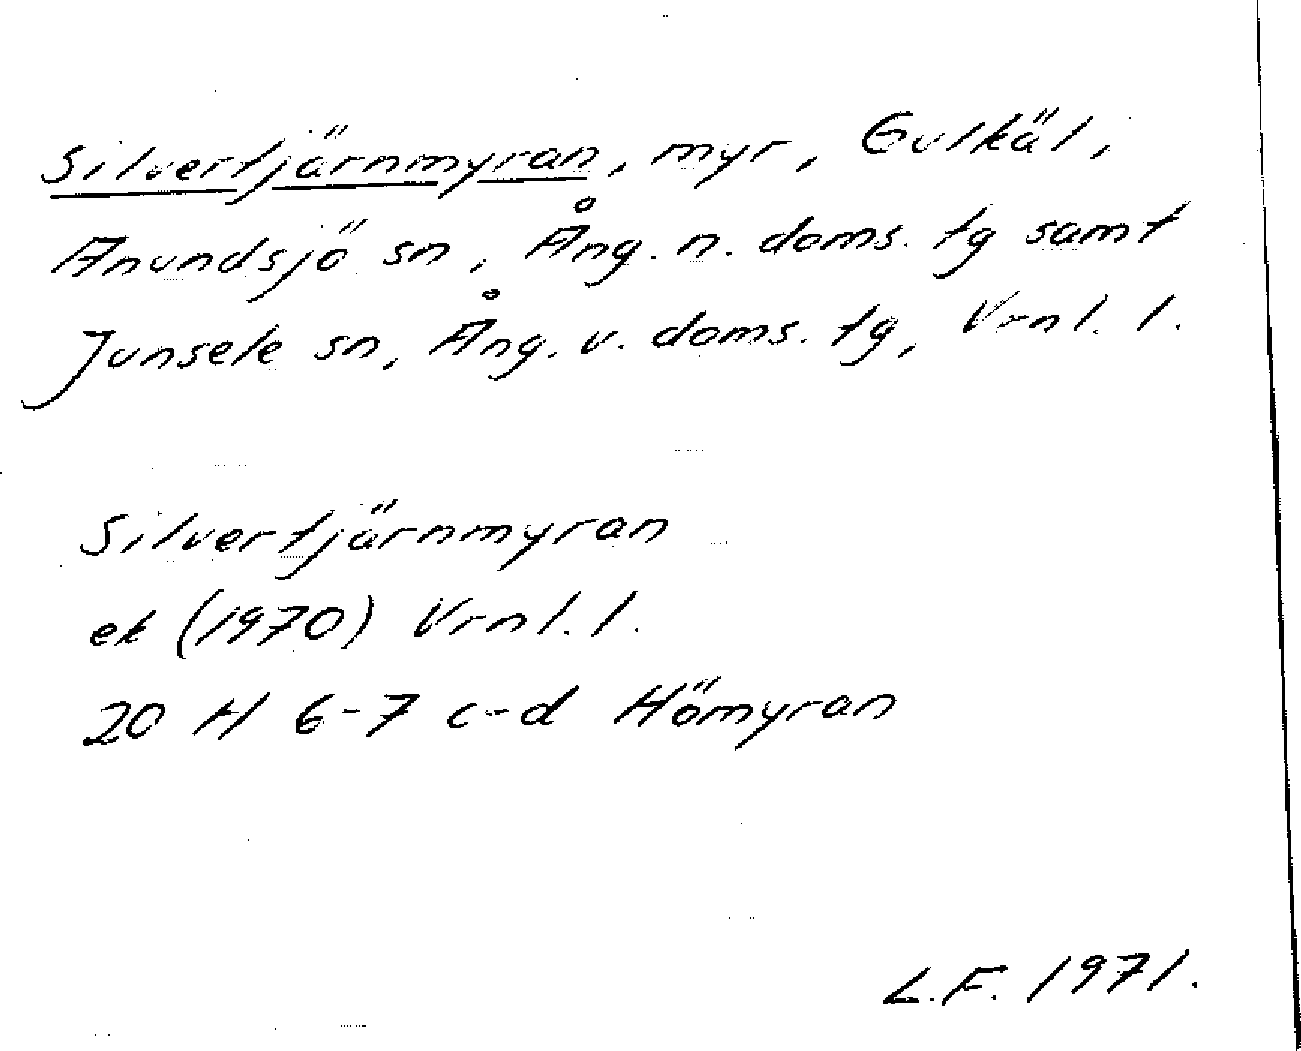 Silvertjärnmyran, myr, Gulkäl,
Anundsjö sn, Ång. n. doms. tg samt
Junsele sn, Ång. v. doms. tg, Vrnl. l.
Silvertjärnmyran
ek (1970) Vrnl. l.
20 H 6-7 c-d Hömyran
L.F. 1971.